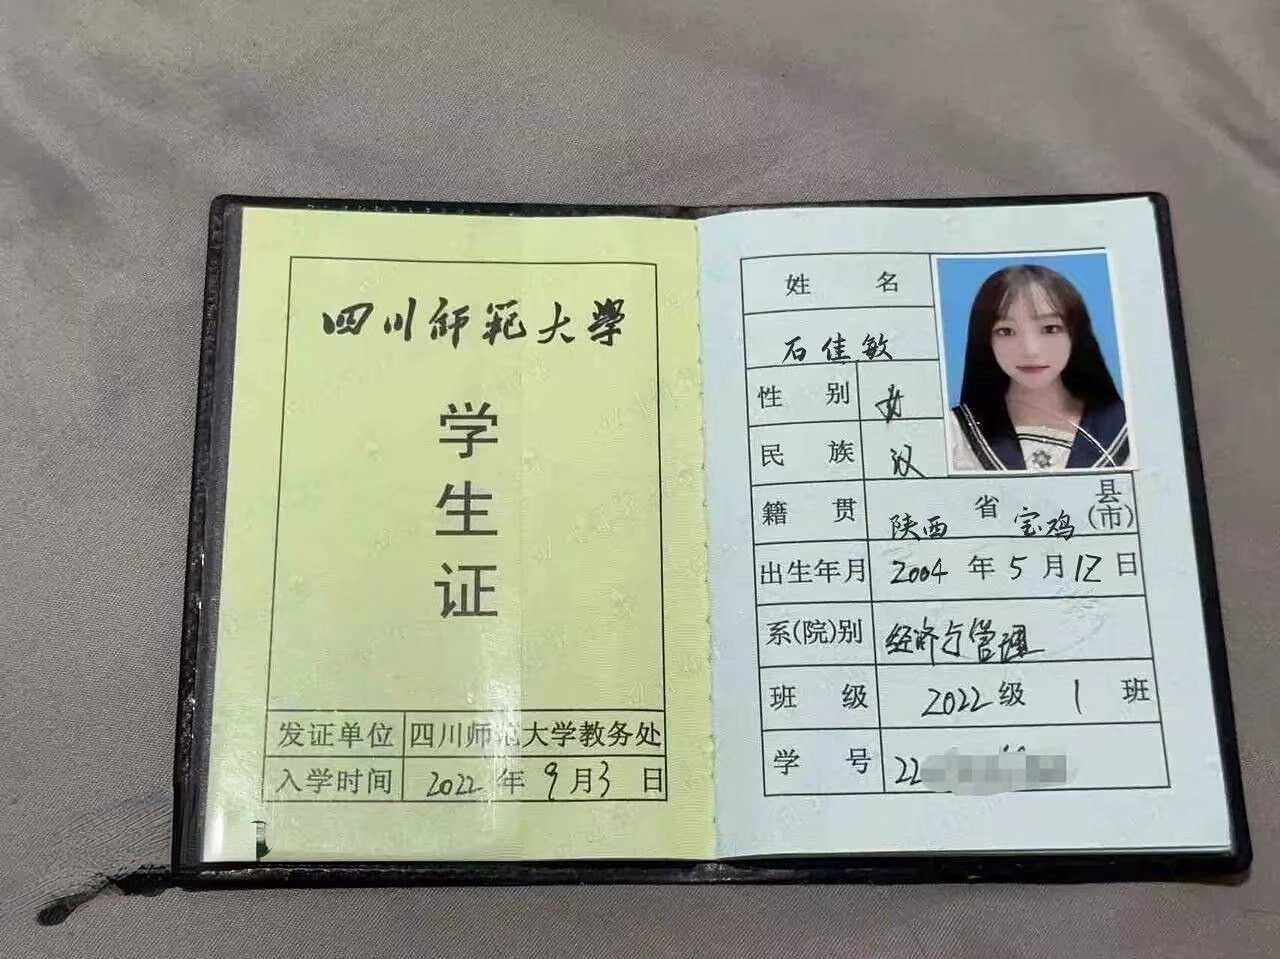 四川师范大学
学
生
证
发证单位 四川师范大学教务处
入学时间 2022 年 9 月 3 日
姓 名
石佳敏
性 别 女
民 族 汉
籍 贯 陕西 省 宝鸡 县(市)
出生年月 2004 年 5 月 12 日
系(院)别 经济与管理
班 级 2022 级 1 班
学 号 22